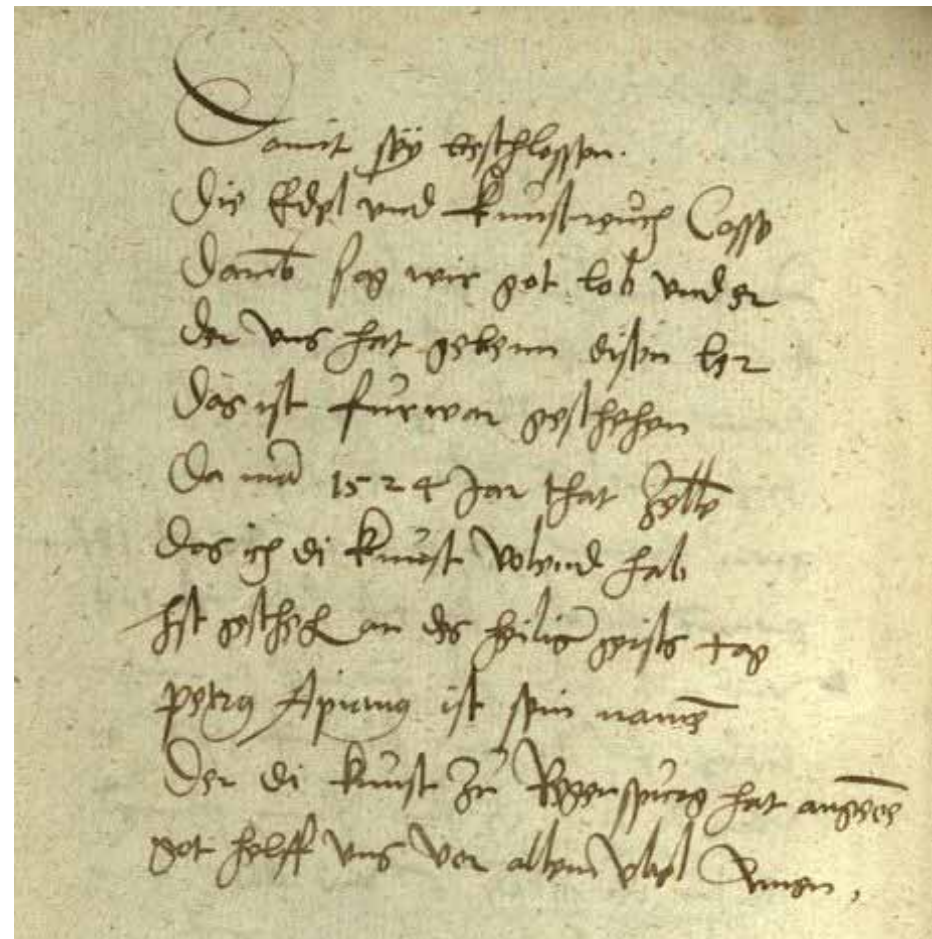 Damit sey beschlossen.
Die Edel vnd kunstreuch Cosse
Darub sag wir got lob vnd er
der vns hat gebenn disen ler
Das ist furwar geschehen
Da ma 1524 Jar that Zelle
Das ich di kunst volend hab
Ist gescheh an des heilig geists tag
petrus Apianus ist sein name
Der di kunst Zu Regenspurg hat
got helff vns vor allem vbel Amen,